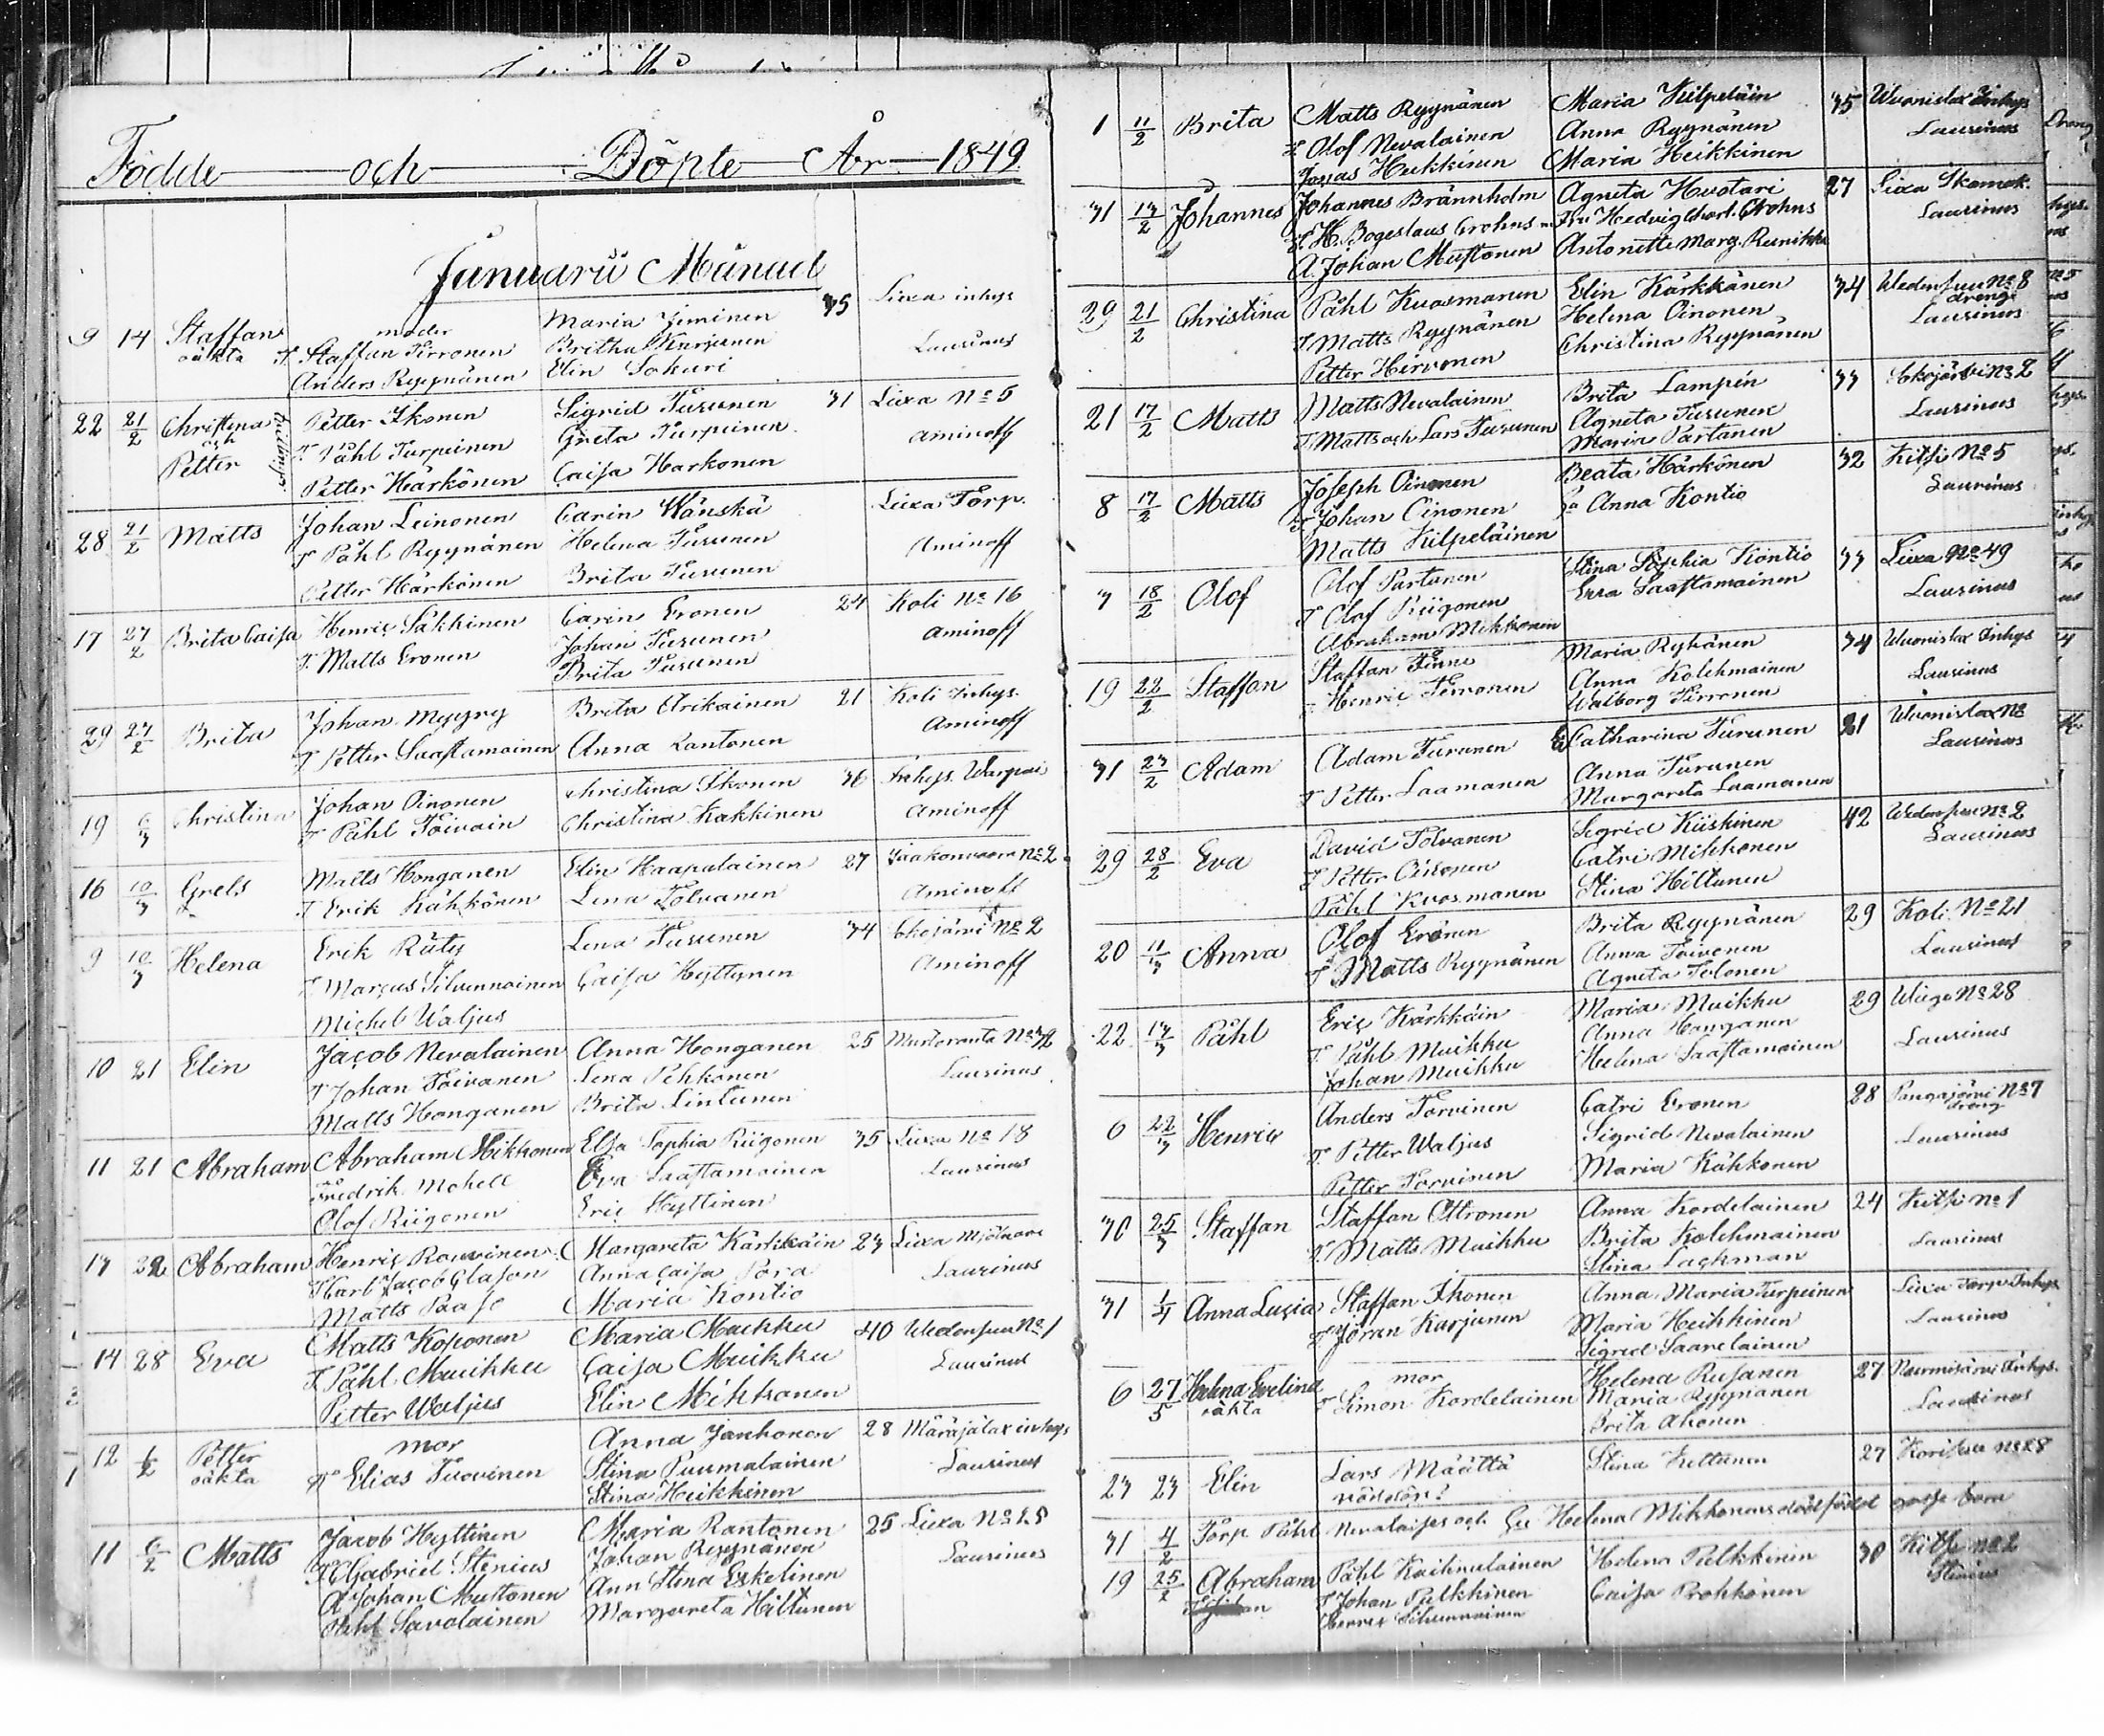 Födde och Döpte År 1849
Januarii Månad
9 14 Staffan moder Maria Jeminen 35 Lixa inhys
oäkta T Staffan Pirronen Britha Laurinus
Anders Ryynänen Elin Sokuri
22 21/2 Christina Petter Ikonen Sigrid Turunen 31 Lixa No 5
och T Påhl Turpeinen Greta Turpeinen Aminoff
Petter Petter Härkönen Caisa Harkonen
28 21/2 Matts Johan Leinonen Carin Wänskä Lixa Torp.
T Påhl Ryynänen Helena Turunen Aminoff
Petter Härkönen Brita Turunen
17 27/2 Brita Caisa Henric Sakkinen Carin Eronen 24 Koli No 16
T. Matts Eronen Johan Turunen Aminoff
Brita Turunen
29 27/2 Brita Johan Myyry Brita Orikainen 21 Koli Inhys.
T Petter Saastamoinen Anna Rantonen Aminoff
19 6/3 Christina Johan Oinonen Christina Ikonen 36 Inhys.
T Påhl Toivain Christina Kakkinen Aminoff
16 10/3 Grels Matts Honganen Elin Haapalainen 27 Jaakonvaara No 2
T Erik Kähkönen Lena Tolvanen Aminoff
9 10/3 Helena Erik Räty Lena Turunen 34 No 2
T Marcus Silvennoinen Caisa Hyttynen Aminoff
Michel Waljus
10 21 Elin Jacob Nevalainen Anna Honganen 25 Mustoranta No 32
T Johan Toivanen Lena Pehkonen Laurinus
Matts Honganen Brita Lintunen
11 21 Abraham Abraham Mikkonen Elsa Sophia Riigonen 35 Lixa No 18
Fredrik Mohell Eva Saastamoinen Laurinus
Olof Riigonen Eric Hyttinen
13 22 Abraham Henric Rouvinen Margareta Kärkkäin 23 Lixa Mjölnare
T Carl Jacob Clason Anna Caisa Pora Laurinus
Matts Paaso Maria Kontio
14 28 Eva Matts Koponen Maria Muikku 40 Wedensuu No 1
T. Påhl Muikku Caisa Muikku Laurinus
Petter Waljus Elin Mikkonen
12 6/2 Petter mor Anna Janhonen 28 Märäjälax inhys
oäkta T Elias Tuovinen Stina Puumalainen Laurinus
Stina Heikkinen
11 6/2 Matts Jacob Hyttinen Maria Rantonen 25 Lixa No 28
T Gabriel Stenius Johan Ryynänen Laurinus
A Johan Mustonen Ann Stina Eskelinen
Påhl Savolainen Margareta Hiltunen
1 11/2 Brita Matts Ryynänen Maria Kilpeläin 35 Wuonislax Inhys
T Olof Nevalainen Anna Ryynänen Laurinus
Jonas Heikkinen Maria Heikkinen
31 13/2 Johannes Johannes Brännholm Agneta Huotari 27 Lixa Skomak.
H. Bogeslaus Crohns Fru Hedvig Charl. Crohns Laurinus
A. Johan Mustonen Antonette Marg. Renikka
29 21/2 Christina Påhl Kuosmanen Elin Kärkkänen 34 Wedensuu No 8
dräng
T Matts Ryynänen Helena Oinonen Laurinus
Petter Hirvonen Christina Ryynänen
21 17/2 Matts Matts Nevalainen Brita Lampén 33 No 2
T Matts och Lars Turunen Agneta Turunen Laurinus
Maria Partanen
8 17/2 Matts Joseph Oinonen Beata Härkönen 32 Kitsi No 5
T Johan Oinonen Anna Kontio Laurinus
Matts Kilpeläinen
7 18/2 Olof Olof Partanen Stina Sophia Kontio 33 Lixa No 49
T Olof Riigonen Eva Saastamoinen Laurinus
Abraham Mikkonen
19 22/2 Staffan Staffan Finne Maria Ryhänen 34 Wuonislax Inhys
T Henric Pirronen Anna Kolehmainen Laurinus
Walborg Pirronen
31 23/2 Adam Adam Turunen Catharina Turunen 21 Wuonislax No
T Petter Laamanen Anna Turunen Laurinus
Margareta Laamanen
29 28/2 Eva David Tolvanen Sigrid Kiiskinen 42 Wedensuu No 2
T Petter Oinonen Catri Mikkonen Laurinus
Påhl Kuosmanen Stina Hiltunen
20 11/3 Anna Olof Eronen Brita Ryynänen 29 Koli No 21
T Matts Ryynänen Anna Toivonen Laurinus
Agneta Tolonen
22 13/3 Påhl Eric Kärkkäin Maria Muikku 29 Wiege No 28
T. Påhl Muikku Anna Honganen Laurinus
Johan Muikku Helena Saastamoinen
6 22/3 Henric Anders Torvinen Catri Eronen 28 Pangajärvi No 7
dräng
T. Petter Waljus Sigrid Nevalainen Laurinus
Petter Torvinen Maria Kähkonen
30 25/3 Staffan Staffan Ottronen Anna Kordelainen 24 Kitsi No 1
T. Matts Muikku Brita Kolehmainen Laurinus
Stina Lachman
31 1/4 Anna Lucia Staffan Ikonen Anna Maria Turpeinen Lixa Torp Inhys
T Jöran Karjunen Maria Heikkinen Laurinus
Sigred Saarelainen
6 27/5 Helena Evelina mor Helena Rusanen 27 Nurmisjärvi Inhys.
oäkta T Simon Kordelainen Maria Ryynänen Laurinus
Brita Ahonen
23 23 Elin Lars Määttä Stina Kettunen 27 Korisuu No 28
nöddöpt
31 4/2 Torp Påhl Nevalaises och Helena Mikkonens dödfödt gosse barn
19 25/2 Abraham Påhl Kaihnulainen Helena Pulkkinen 30 Kitsi No 2
T Johan Pulkkinen Caisa Prokkonen Stenius
Henric Silvennoinen